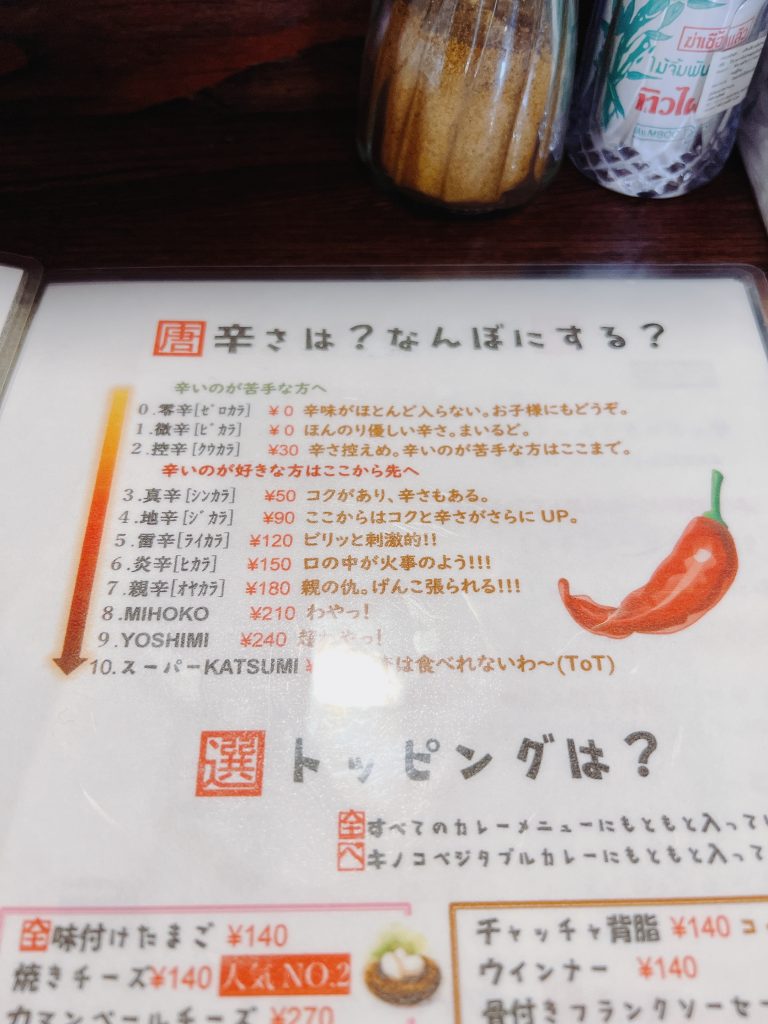 ไม้จิ้มฟัน
唐 辛さは？なんぼにする？
辛いのが苦手な方へ
0.零辛[ｾﾞﾛｶﾗ] ¥0 辛味がほとんど入らない。お子様にもどうぞ。
1.微辛[ﾋﾞｶﾗ] ¥0 ほんのり優しい辛さ。まいるど。
2.控辛[ｸｳｶﾗ] ¥30 辛さ控えめ。辛いのが苦手な方はここまで。
辛いのが好きな方はここから先へ
3.真辛[ｼﾝｶﾗ] ¥50 コクがあり、辛さもある。
4.地辛[ｼﾞｶﾗ] ¥90 ここからはコクと辛さがさらにUP。
5.雷辛[ﾗｲｶﾗ] ¥120 ビリッと刺激的!!
6.炎辛[ﾋｶﾗ] ¥150 口の中が火事のよう!!!
7.親辛[ｵﾔｶﾗ] ¥180 親の仇。げんこ張られる!!!
8.MIHOKO ¥210 わやっ!
9.YOSHIMI ¥240 超わやっ!
10.スーパーKATSUMI は食べれないわ〜(ToT)
選 トッピングは？
全すべてのカレーメニューにもともと入って
べキノコベジタブルカレーにもともと入って
全味付けたまご ¥140
焼きチーズ¥140 人気NO.2
カマンベールチーズ ¥270
チャッチャ背脂 ¥140 コ
ウインナー ¥140
骨付きフランクソーセー